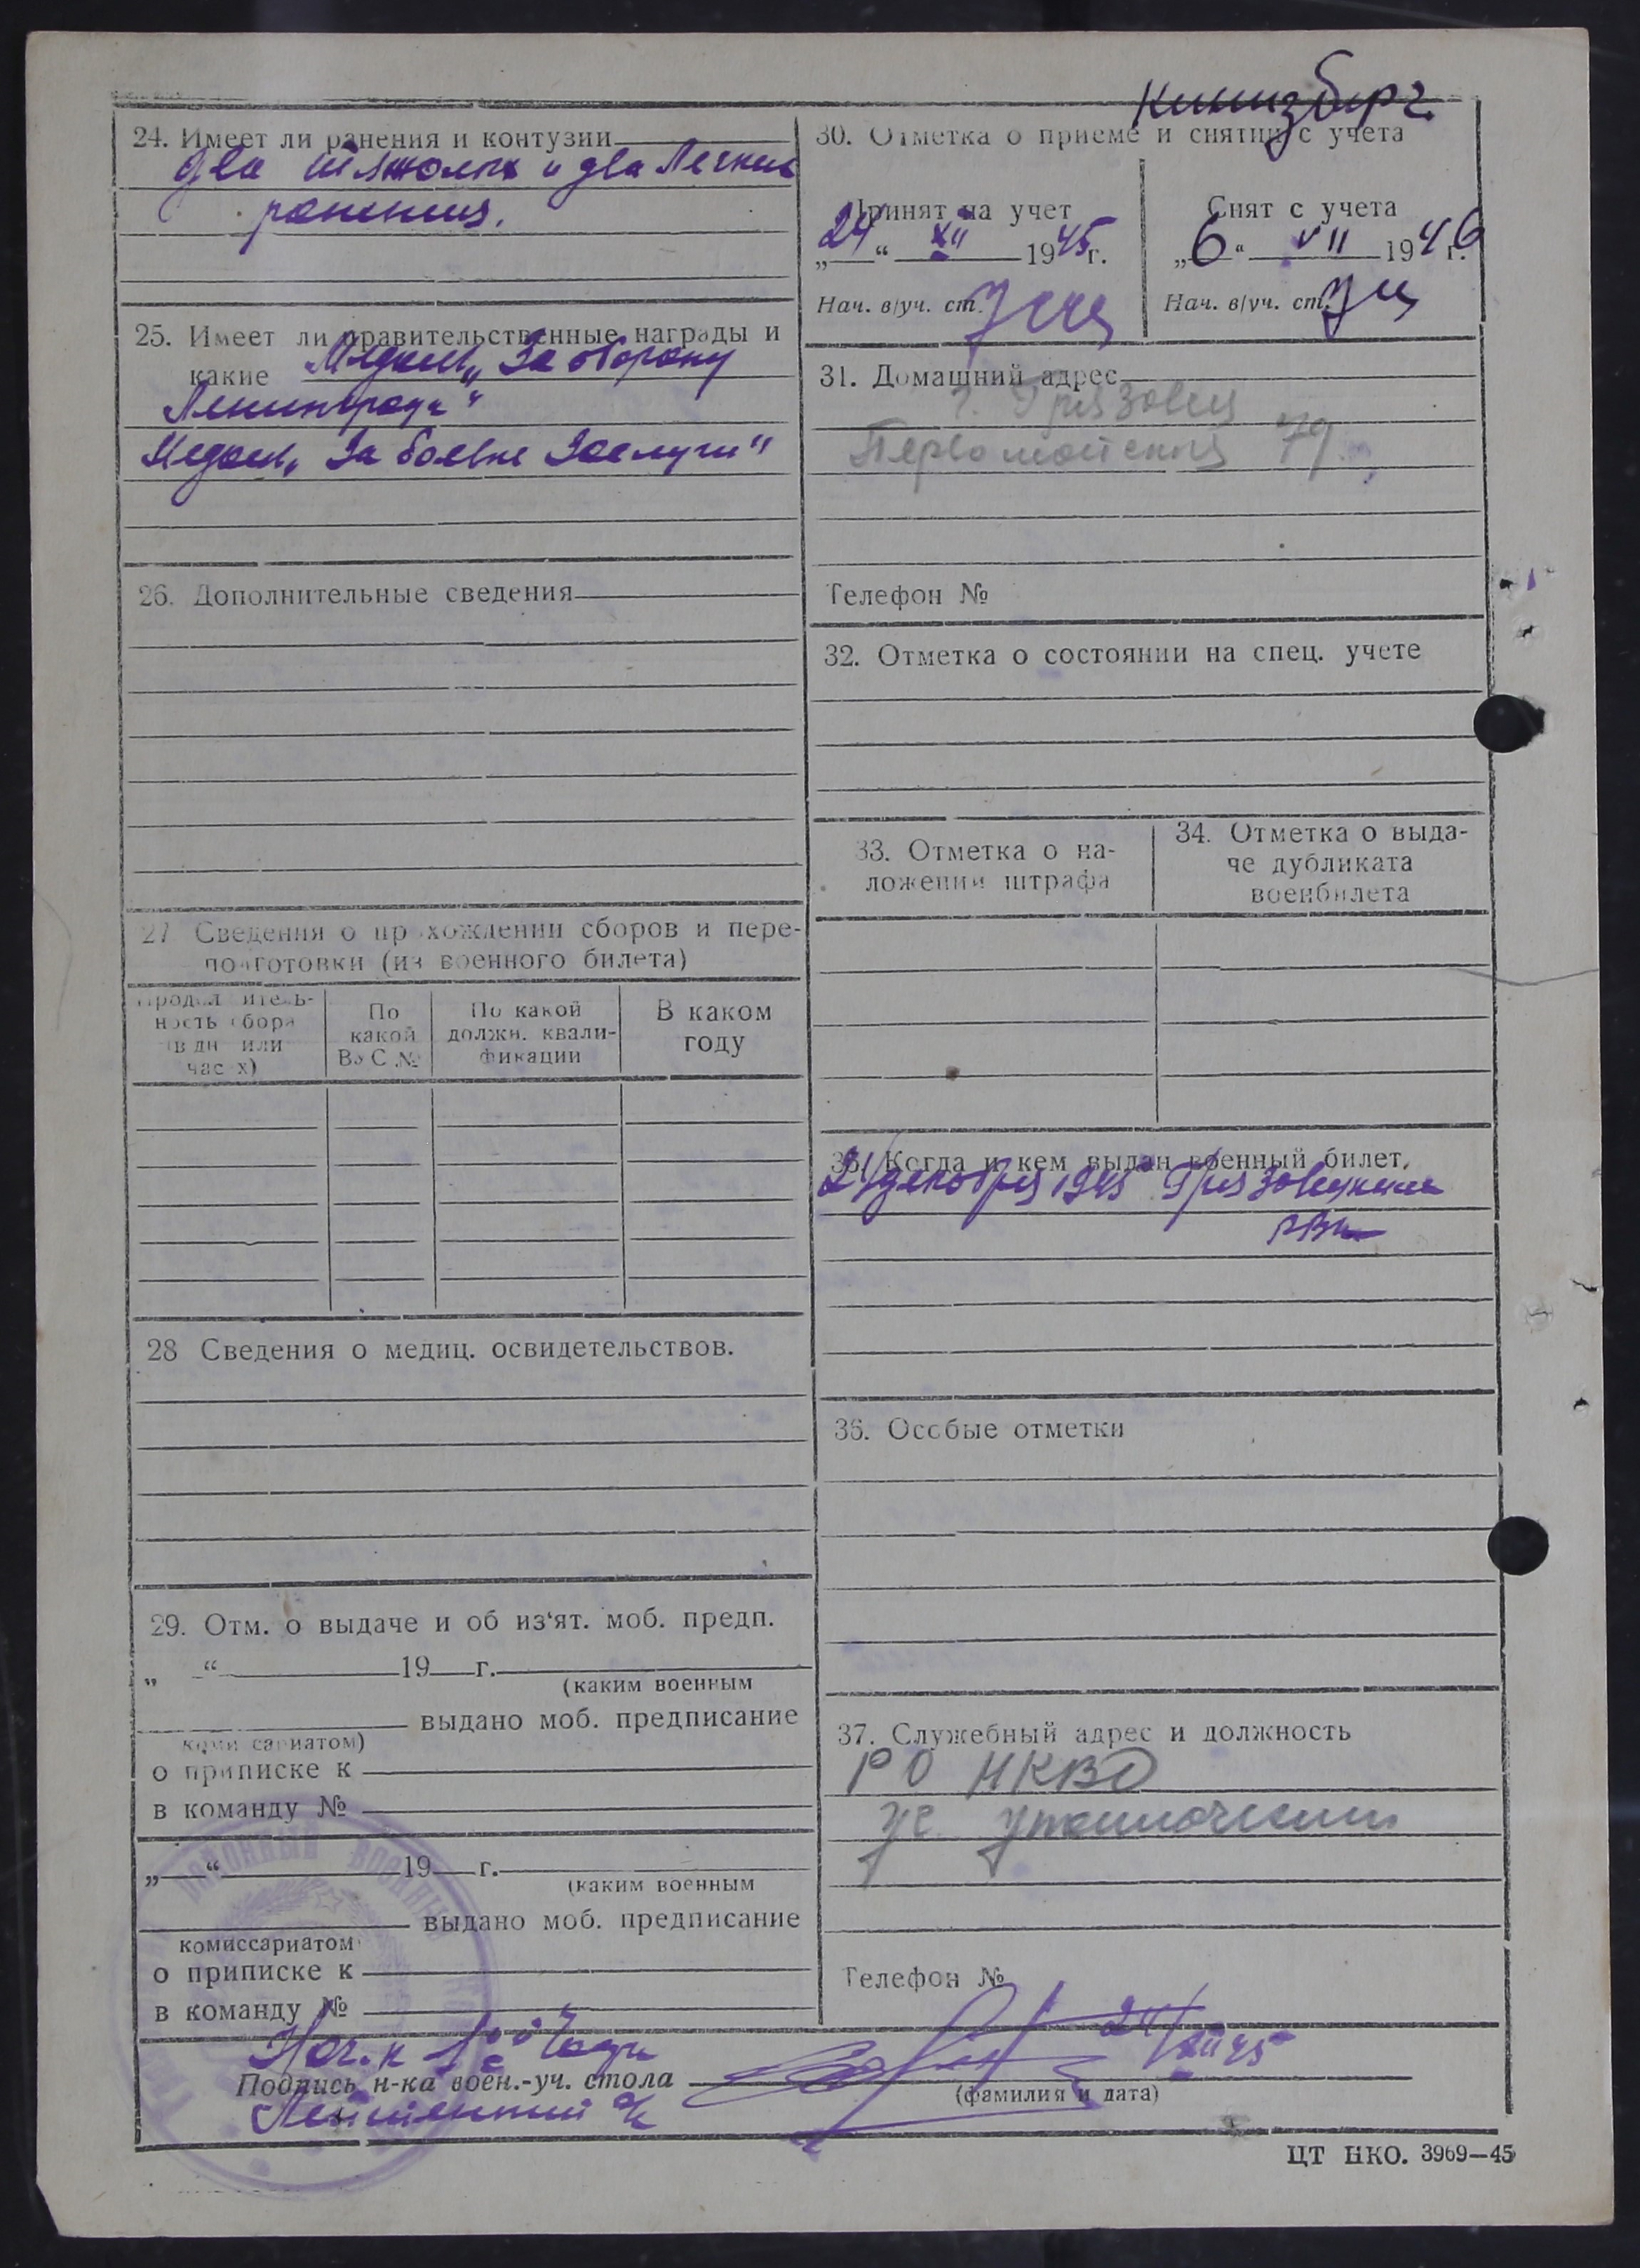 Кинизберг.
24. Имеет ли ранения и контузии
два тяжолых и два легких
ранения.
25. Имеет ли правительственные награды и
какие Медаль „За оборону
Ленинграда"
Медаль „За боевые Заслуги"
26. Дополнительные сведения
27 Сведения о прохождении сборов и пере-
подготовки (из военного билета)
Продолжитель-
ность сбора
(в дн. или
часах)
По
какой
ВуС №
По какой
должн. квали-
фикации
В каком
году
28 Сведения о медиц. освидетельствов.
29. Отм. о выдаче и об из'ят. моб. предп.
„ “ 19 г.
(каким военным
выдано моб. предписание
комиссариатом)
о приписке к
в команду №
„ “ 19 г.
(каким военным
выдано моб. предписание
комиссариатом
о приписке к
в команду №
30. Отметка о приеме и снятии с учета
Принят на учет
„24“ XII 1945г.
Нач. в/уч. ст.
Снят с учета
„6“ VII 1946 г.
Нач. в/уч. ст.
31. Домашний адрес
г. Грязовец
Первомайская 79
Телефон №
32. Отметка о состоянии на спец. учете
33. Отметка о на-
ложении штрафа
34. Отметка о выда-
че дубликата
военбилета
35. Когда и кем выдан военный билет.
24 декабря 1945 Грязовецким
РВК
36. Особые отметки
37. Служебный адрес и должность
РО НКВД
уч. уполномочен
Телефон №
Нач.к 1ой Части
Подпись н-ка воен.-уч. стола
24/XII 45
(фамилия и дата)
Лейтенант а/с
ЦТ НКО. 3969—45